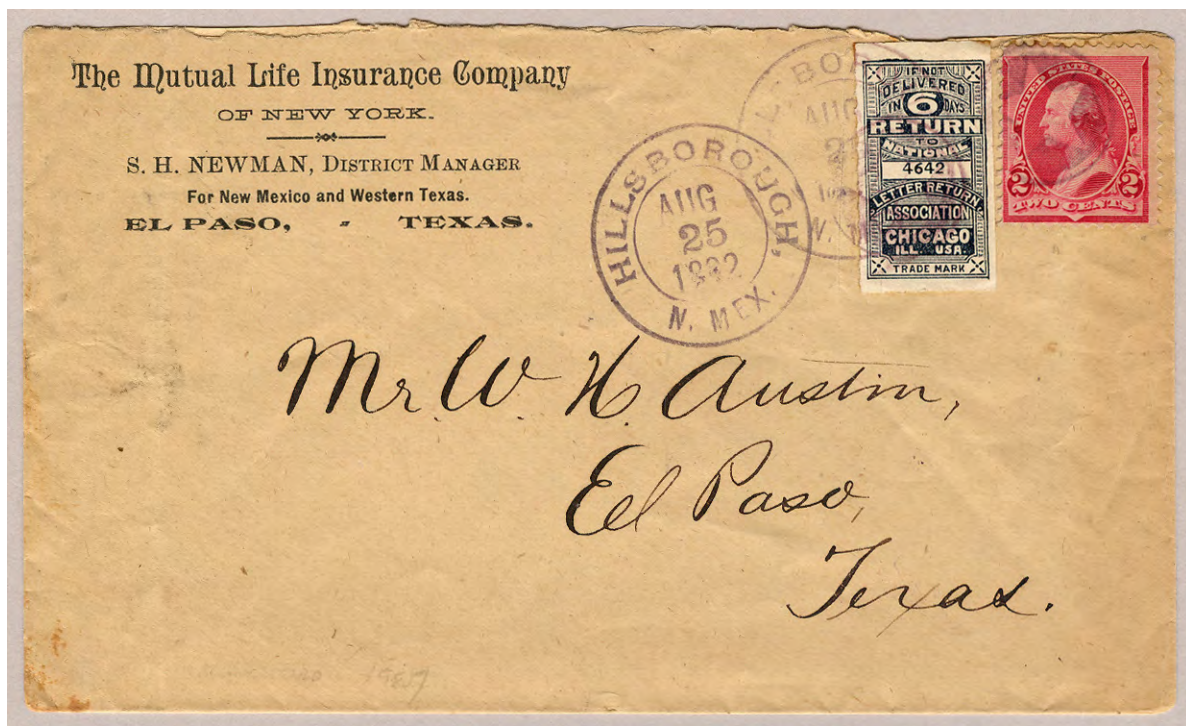 The Mutual Life Insurance Company
OF NEW YORK.
S. H. NEWMAN, DISTRICT MANAGER
For New Mexico and Western Texas.
EL PASO, - TEXAS.
HILLSBOROUGH,
AUG
25
1892
N. MEX.
AUG
N.
IF NOT
DELIVERED
IN 6 DAYS
RETURN
TO
NATIONAL
4642
LETTER RETURN
ASSOCIATION
CHICAGO
ILL. USA.
TRADE MARK
UNITED STATES POSTAGE
2 2
TWO CENTS
Mr W H Austin,
El Paso,
Texas.